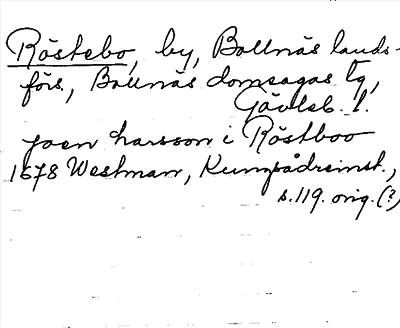 Röstebo, by, Bollnäs lands-
förs., Bollnäs domsagas tg,
Gävleb. l.
Joen Larsson i Röstboo
1678 Westman, Kungsådreinst.,
s. 119. orig. (?)